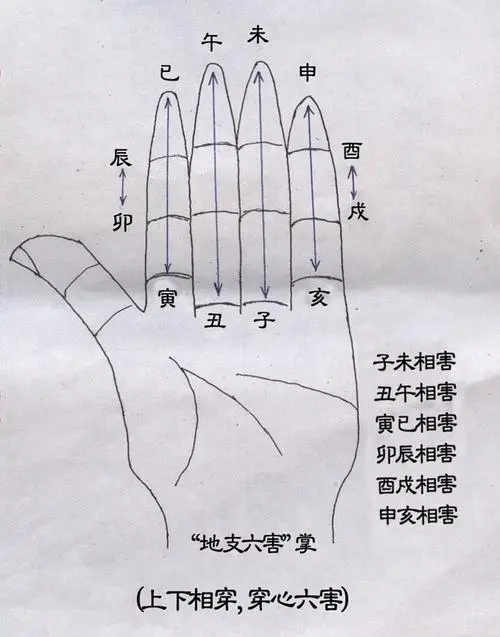 午 未
巳 申
辰 酉
卯 戌
寅 亥
丑 子
子未相害
丑午相害
寅巳相害
卯辰相害
酉戌相害
申亥相害
“地支六害”掌
(上下相穿,穿心六害)